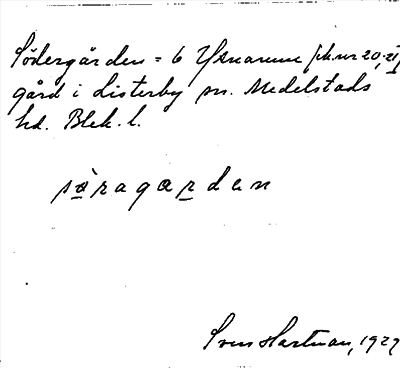 Södergården = 6 Yxnarum [sk.nr 20,21]
gård i Listerby sn. Medelstads
hd. Blek. l.
sǫ̀ragarden
Sven Hartman, 1929